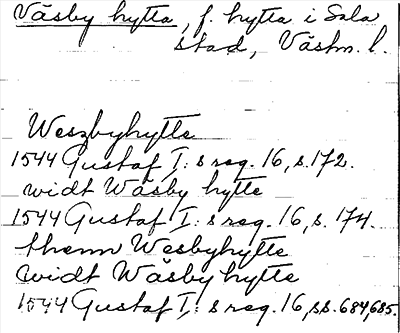 Väsby hytta, f. hytta i Sala
stad, Västm. l.
Weszbyhytte
1544 Gustaf I:s reg. 16, s. 172.
widt Wäsby hytte
1544 Gustaf I:s reg. 16, s. 174.
thenn Wesbyhytte
widt Wäsby hytte
1544 Gustaf I:s reg. 16, ss. 684, 685.